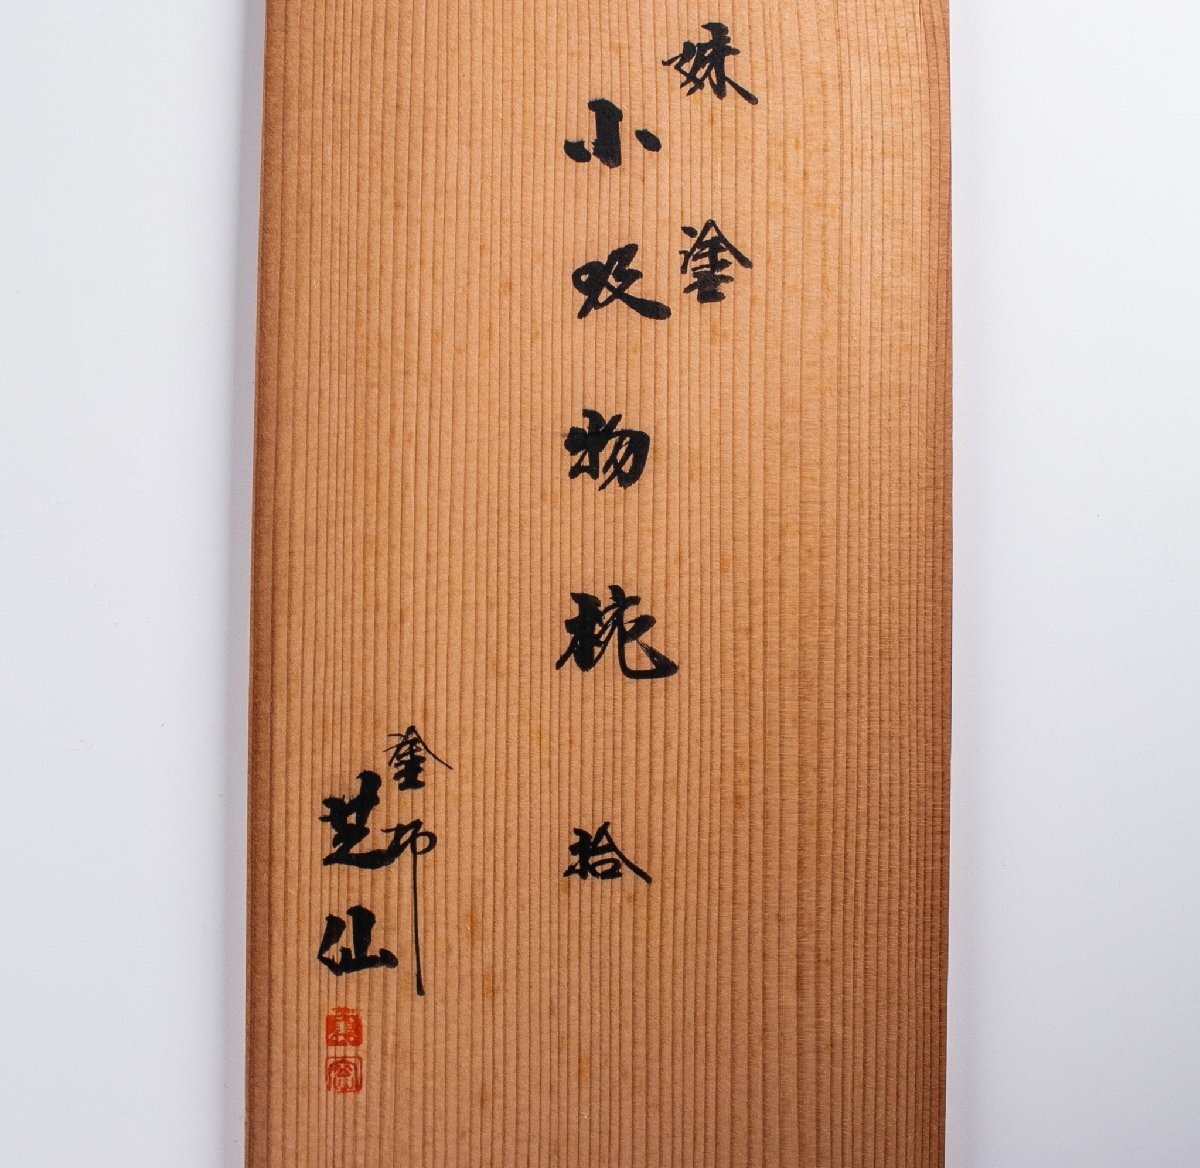 塗
小吸物椀 拾
塗師
芝仙